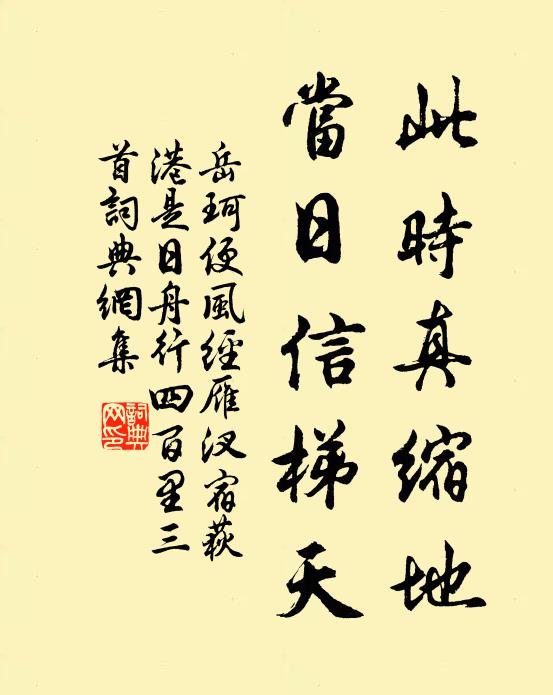 此時真縮地
當日信梯天
岳珂便風經雁汊宿萩
港是日舟行四百里三
首詞典網集
詞典
网印